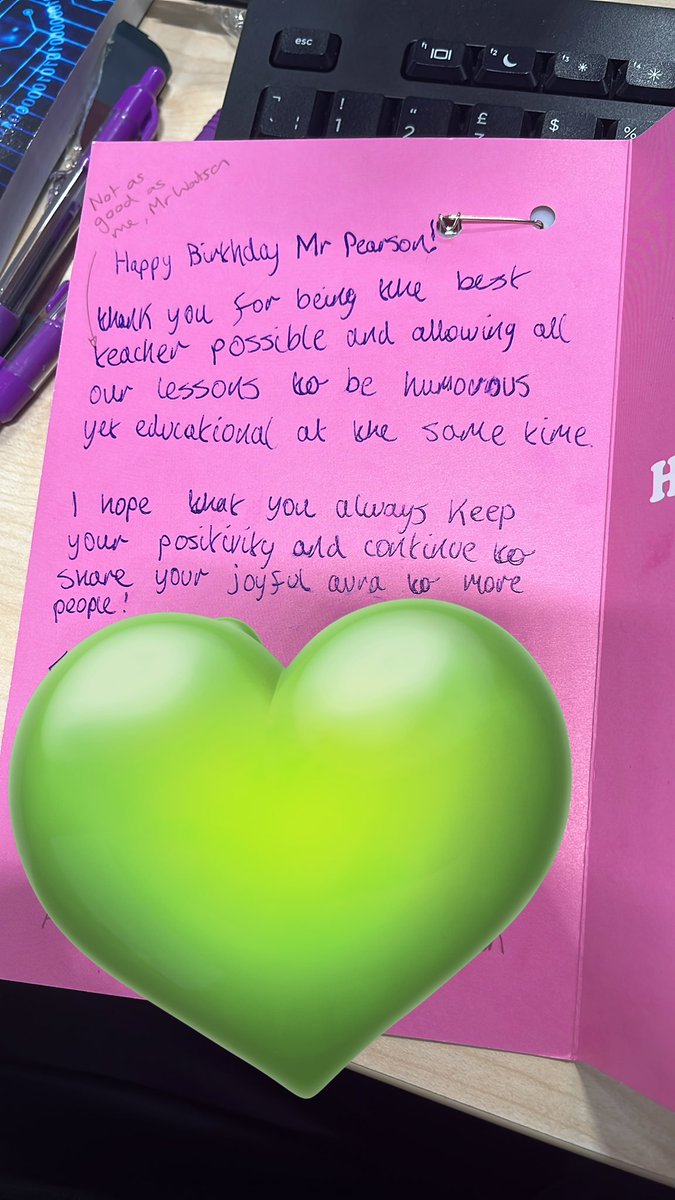 esc
f1
f2
f3
f4
!
1
"
2
£
3
$
%
Not as
good as
me, Mr Watson
Happy Birthday Mr Pearson!
thank you for being the best
teacher possible and allowing all
our lessons to be humorous
yet educational at the same time.
I hope that you always keep
your positivity and continue to
share your joyful aura to more
people!
H